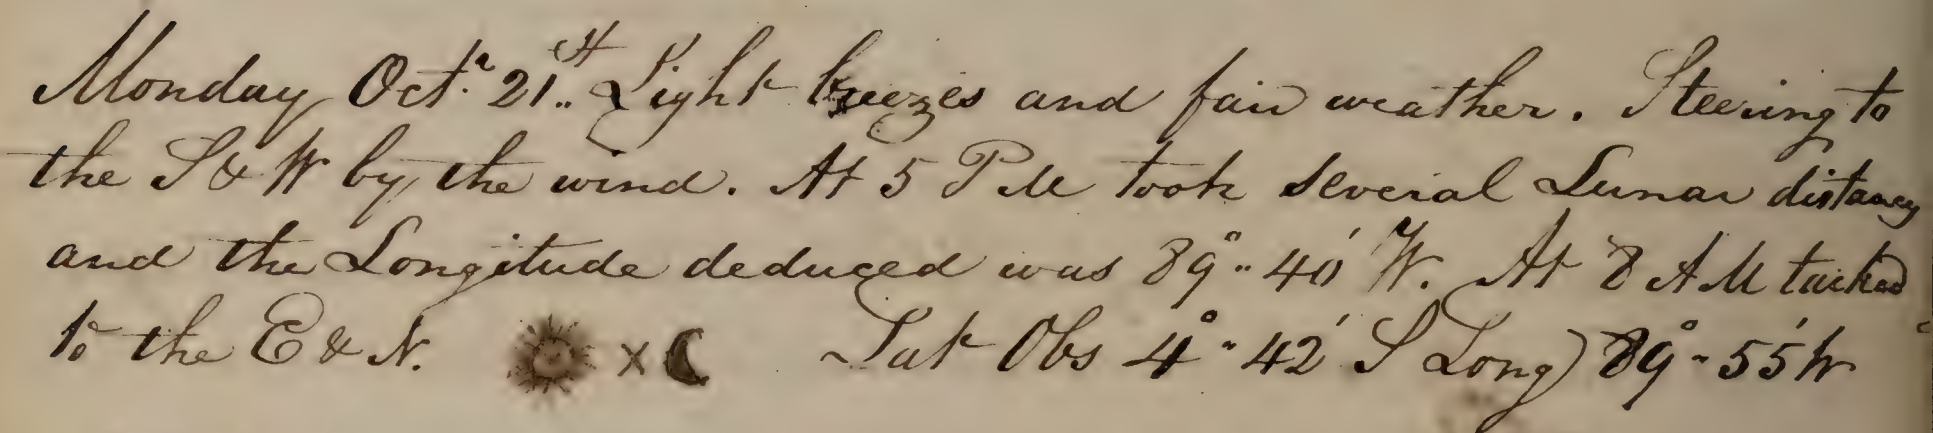 Monday Octr. 21st. Light breezes and fair weather. Steering to
the S & W by the wind. At 5 P M took several Lunar distances
and the Longitude deduced was 89°.. 40' W. At 8 A M tacked
to the E & N. ☀ x ☾ Lat Obs 4°.. 42' S Long) 89°.. 55' W